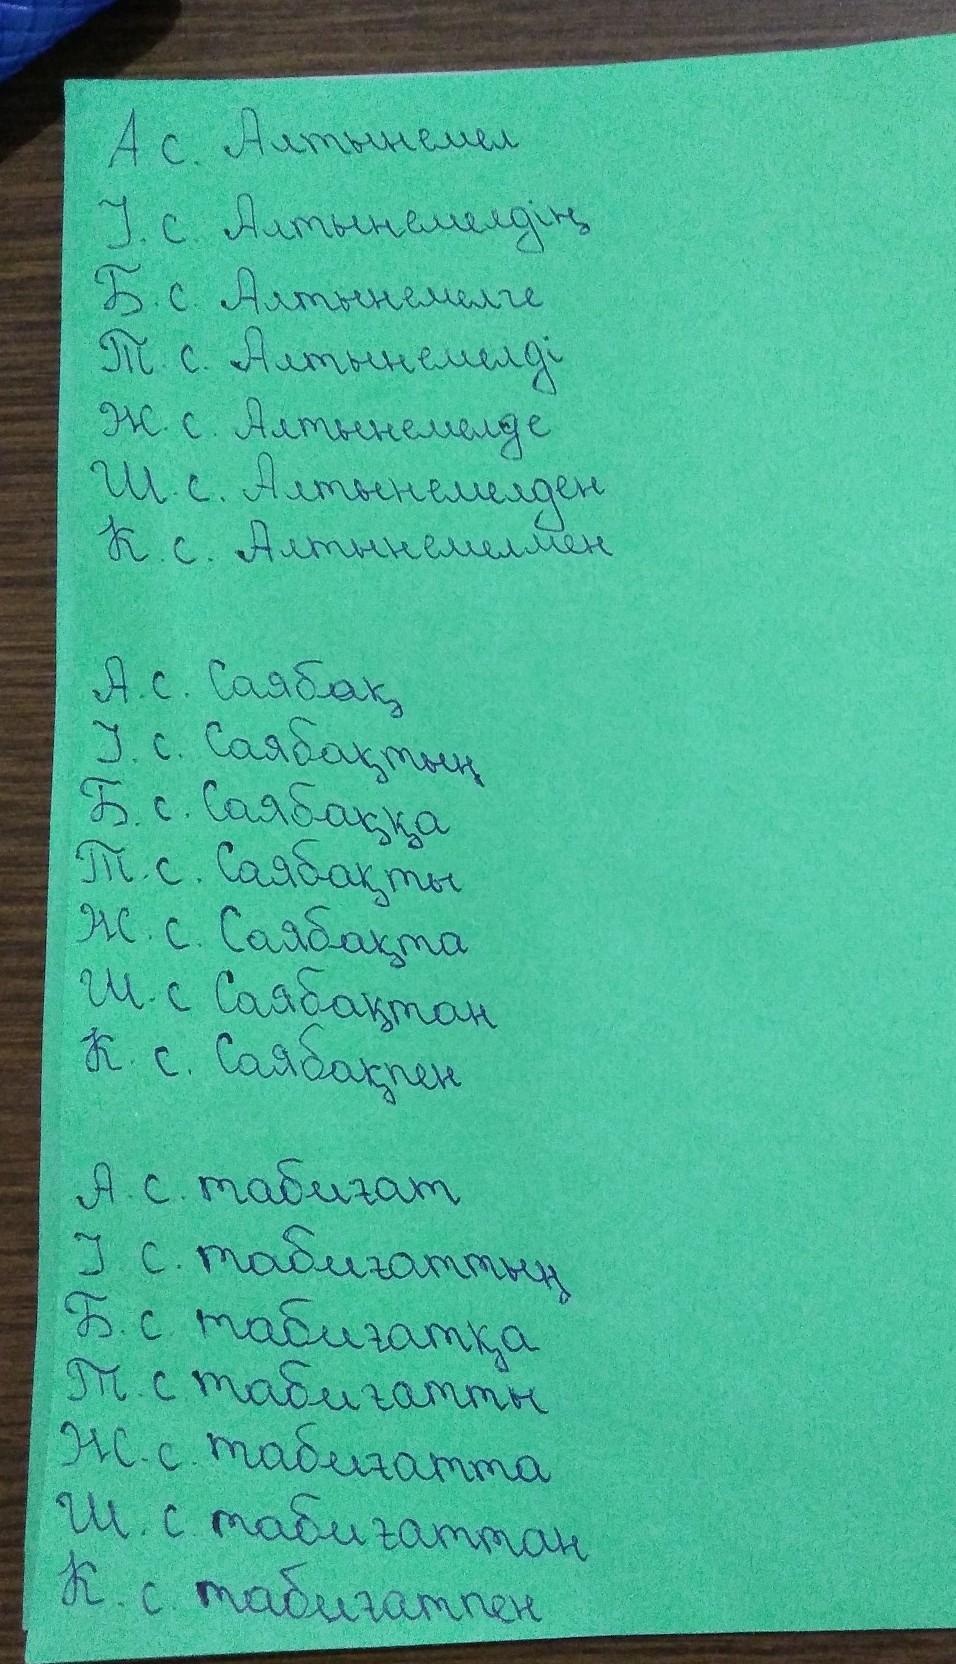 А с. Алтынемел
І. с. Алтынемелдің
Б. с. Алтынемелге
Т. с. Алтынемелді
Ж. с. Алтынемелде
Ш. с. Алтынемелден
К. с. Алтынемелмен
А. с. Саябақ
І. с. Саябақтың
Б. с. Саябаққа
Т. с. Саябақты
Ж. с. Саябақта
Ш. с Саябақтан
К. с. Саябақпен
А. с. табиғат
І с. табиғаттың
Б. с. табиғатқа
Т. с табиғатты
Ж. с. табиғатта
Ш. с. табиғаттан
К. с. табиғатпен